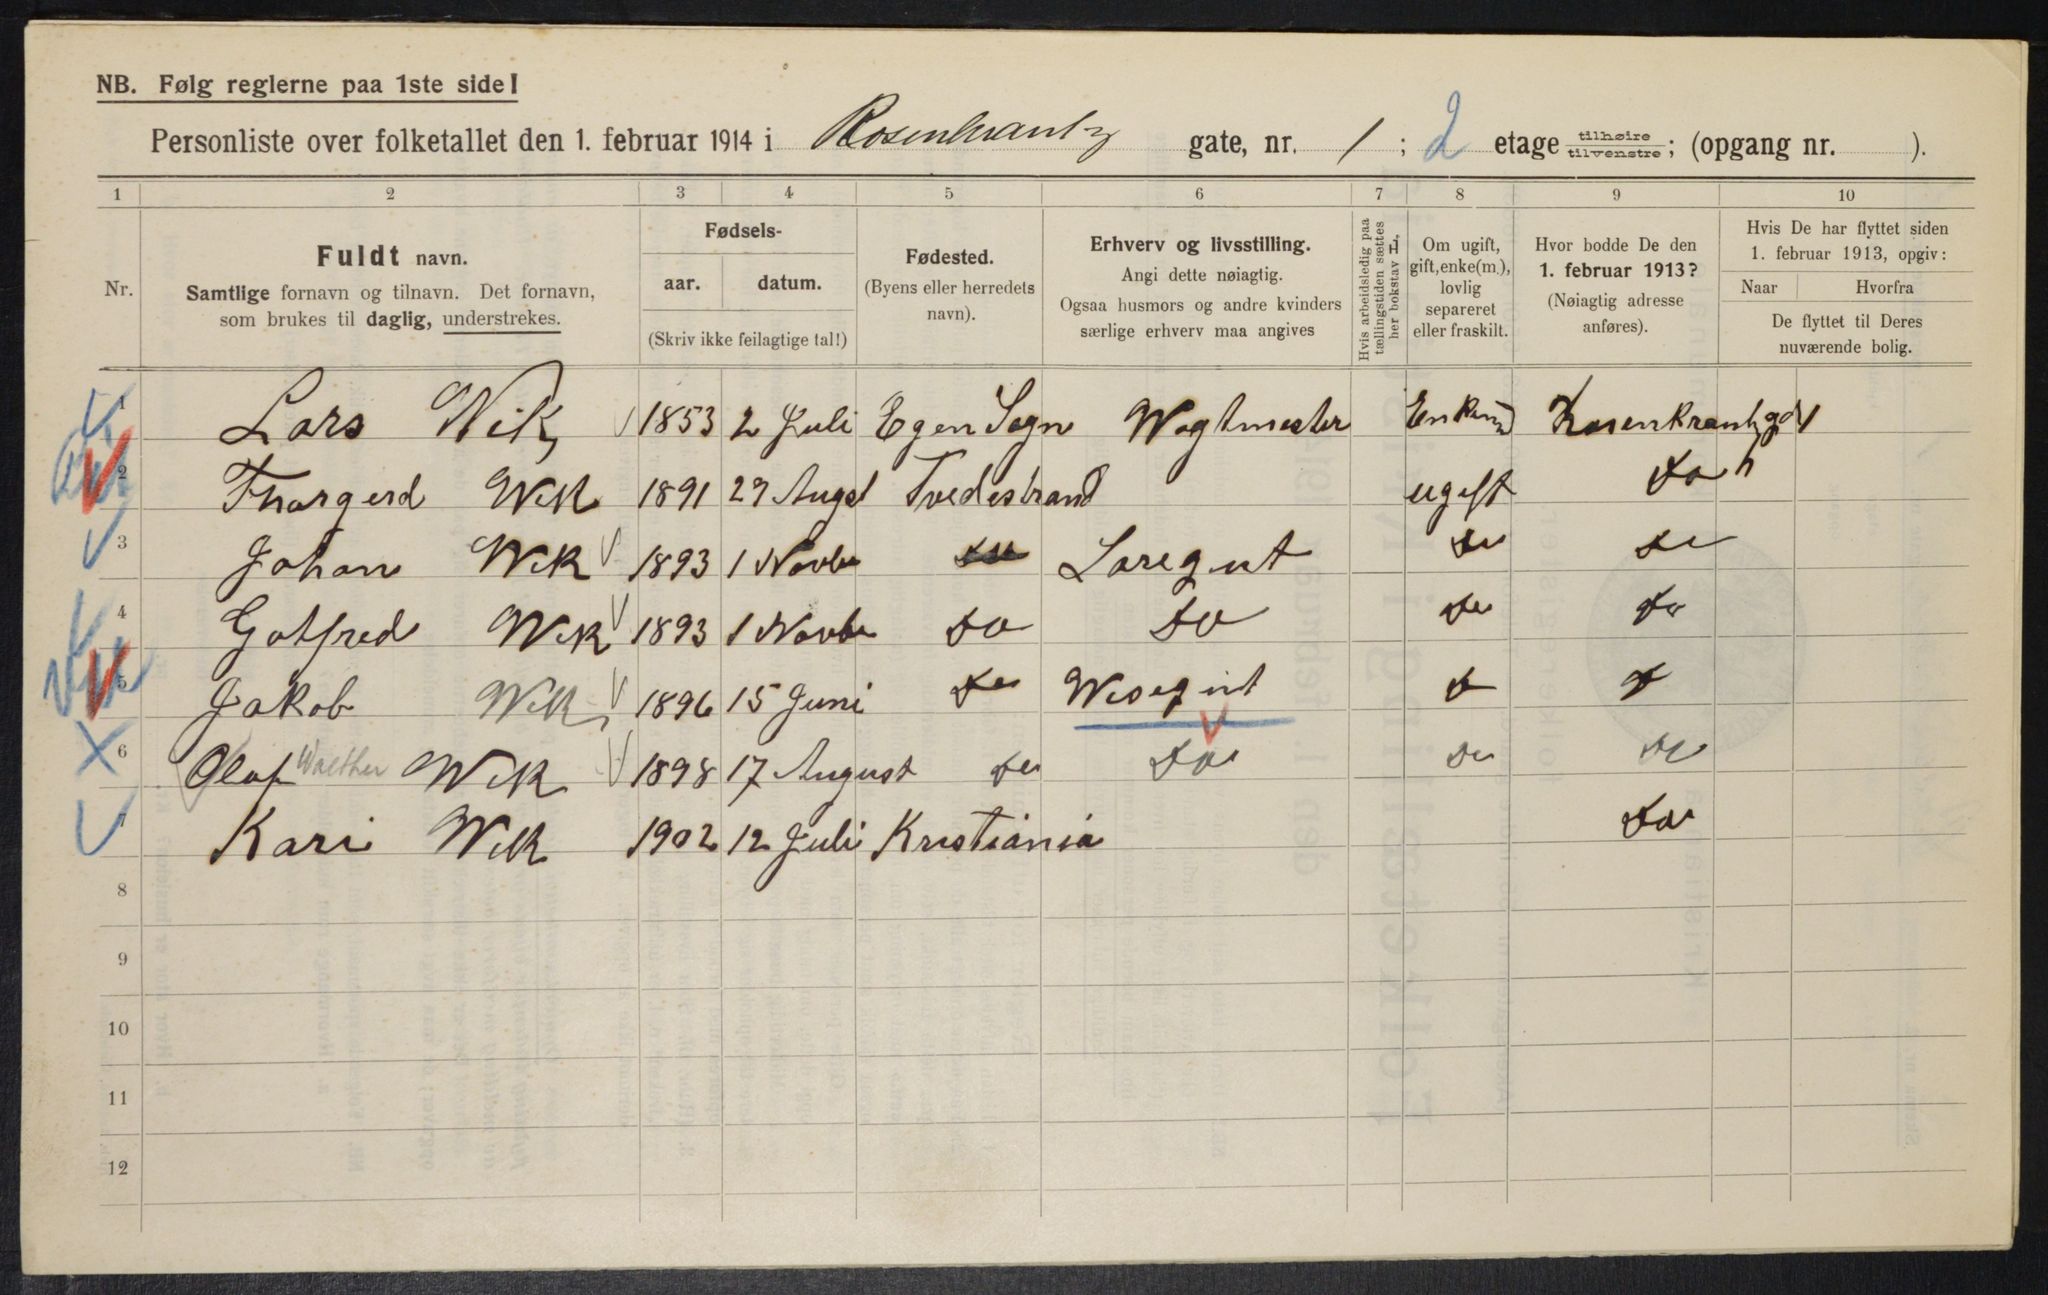 NB. Følg reglerne paa 1ste side!
Personliste over folketallet den 1. februar 1914 i Rosenkrantz gate, nr. 1 ; 2 etage tilhøire tilvenstre ; (opgang nr. ).
1 2 3 4 5 6 7 8 9 10
Nr.
Fuldt navn.
Samtlige fornavn og tilnavn. Det fornavn,
som brukes til daglig, understrekes.
Fødsels-
aar. datum.
(Skriv ikke feilagtige tal!)
Fødested.
(Byens eller herredets
navn).
Erhverv og livsstilling.
Angi dette nøiagtig.
Ogsaa husmors og andre kvinders
særlige erhverv maa angives
Hvis arbeidsledig paa
tællingstiden sættes
her bokstav L.
Om ugift,
gift, enke(m.),
lovlig
separeret
eller fraskilt.
Hvor bodde De den
1. februar 1913?
(Nøiagtig adresse
anføres).
Hvis De har flyttet siden
1. februar 1913, opgiv:
Naar Hvorfra
De flyttet til Deres
nuværende bolig.
1 Lars Wik 1853 2 Juli Egen Sogn Wagtmester Enkem Rosenkrantzgd 1
2 Thorgerd Wik 1891 29 Augst Tvedestrand ugift Do
3 Johan Wik 1893 1 Novbr Do Laregut Do Do
4 Gotfred Wik 1893 1 Novbr Do Do Do Do
5 Jakob Wik 1896 15 Juni Do Wisegut Do Do
6 Olaf Walther Wik 1898 17 August Do Do Do Do
7 Kari Wik 1902 12 Juli Kristiania Do
8
9
10
11
12